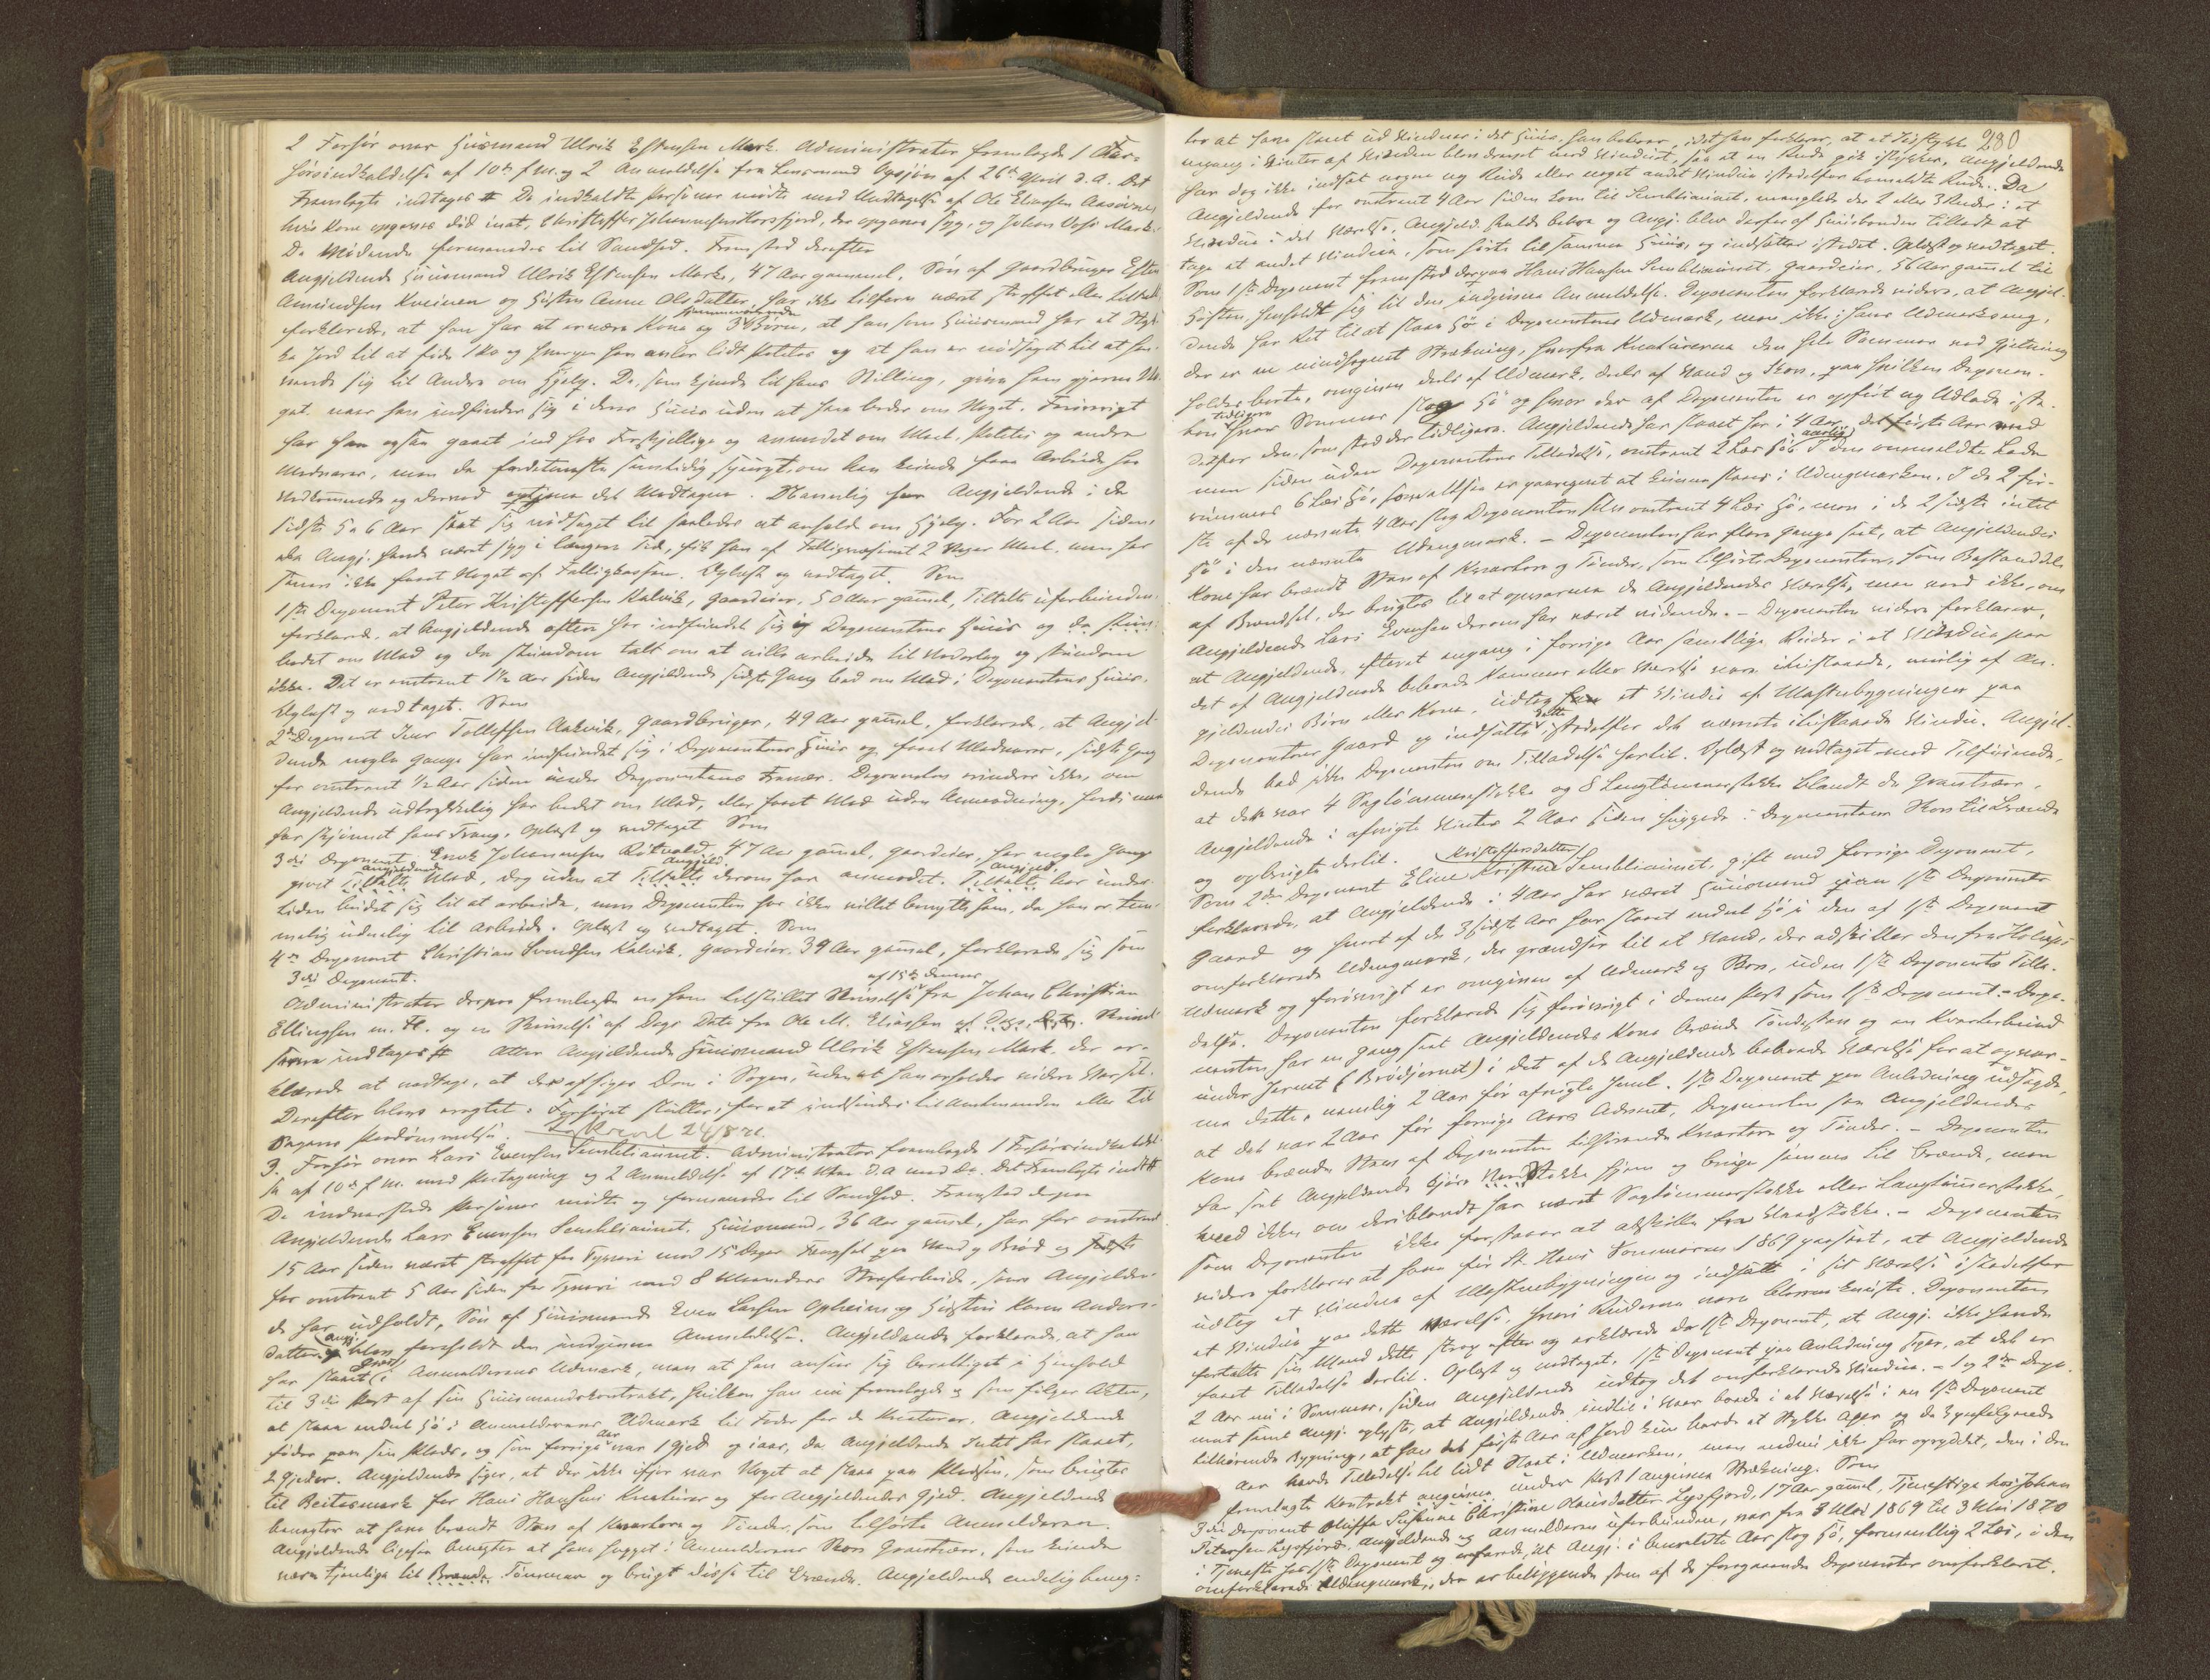 2 Forhør over Huusmand Ulrik Estensen Mark. Administrator fremlagde 1 For-
hørsindkaldelse af 10de f.M. og 2 Anmeldelse fra Lensmand af 26de April d.A. Det
Fremlagte indtages # De indkaldte Personer mødte med Undtagelse af Ole Eliasen
hvis Kone opgives død inat, Christoffer Johannesen Korsfjord, der opgives syg, og Johan Mark.
De Mødende formanedes til Sandhed. Fremstod derefter
Angjeldende Huusmand Ulrik Estensen Mark, 47 Aar gammel, Søn af Gaardbruger Esten
Amundsen Kveinen og Hustru Anne Olsdatter, har ikke tilforn været straffet eller tiltalt
hjemmeværende
forklarede, at han har at ernære Kone og 3 Børn, at han som Huusmand har et Styk-
ke Jord til at føde 1 Ko og hvorpaa han avler lidt Poteter og at han er nødsaget til at hen-
vende sig til Andre om Hjelp. De, som kjende til hans Stilling, give ham gjerne No-
get naar han indfinder sig i deres Huus uden at han beder om Noget. Forøvrigt
har han ogsaa gaaet ind hos Forskjellige og anmodet om Mad, Poteter og andre
Madvarer, men da for det meste samtidig spurgt, om han kunde faae Arbeide hos
Vedkommende og derved optjene det Modtagne. Navnlig har Angjeldende i de
sidste 5 a 6 Aar seet sig nødsaget til saaledes at anholde om Hjelp. For 2 Aar siden
da Angj. havde været syg i længere Tid, fik han af Fattigvæsenet 2 Voger Meel, men har
senere ikke faaet Noget af Fattigkassen. Oplæst og vedtaget. Som
1ste Deponent Peter Kristoffersen Kalvik, Gaardeier, 50 Aar gamel, Tiltalte uforbunden,
forklarede, at Angjeldende oftere har indfundet sig i Deponentens Huus og da stun-
bedet om Mad og da stundom talt om at ville arbeide til Vederlag og stundom
ikke. Det er omtrent 1½ Aar siden Angjeldende sidste Gang bad om Mad i Deponentens Huus.
Oplæst og vedtaget. Som
2den Deponent Iver Tollefsen Aakvik, Gaardbruger, 49 Aar gamel, forklarede, at Angjel-
dende nogle Gange har indfundet sig i Deponentens Huus og faaet Madvarer, sidste Gang
for omtrent ½ Aar siden under Deponentens Fravær. Deponenten erindrer ikke, om
Angjeldende udtrykkelig har bedet om Mad, eller faaet Mad uden Anmodning, fordi man
har skjønnet hans Trang. Oplæst og vedtaget. Som
3die Deponent Enok Johannesen Røtvold, 47 Aar gamel, Gaardeier, har nogle Gange
angjeldende angjeld. angjeld.
givet Tiltalte Mad, dog uden at Tiltalte derom har anmodet. Tiltalte har under-
tiden budet sig til at arbeide, men Deponenten har ikke villet benytte ham, da han er tem-
melig uduelig til Arbeide. Oplæst og vedtaget. Som
4de Deponent Christian Svendsen Kalvik, Gaardeier, 39 Aar gamel, forklarede sig som
3die Deponent.
af 15de dennes
Administrator derpaa fremlagde en ham tilstillet Skrivelse fra Johan Christian
Ellingsen m. Fl. og en Skrivelse af Dags Dato fra Ole M. Eliassen
indtages # Atter Angjeldende Huusmand Ulrik Estensen Mark, der er-
klærede at vedtage, at der afsiges Dom i Sagen, uden at han erholder videre Varsel.
Derefter blev eragtet: Forhøret slutter for at indsendes til Amtmanden eller til
Sagens Paadømmelse.
3. Forhør over Lars Evensen Administrator fremlagde 1 Forhørsindkaldel-
se af 10de f.M. med Paategning og 2 Anmeldelse af 17de d.A. med Do. Det Fremlagte indt. #
De indvarslede Personer mødte og formanedes til Sandhed. Fremstod derpaa
Angjeldende Lars Evensen Huusmand, 36 Aar gamel, har for omtrent
15 Aar siden været straffet for Tyveri med 15 Dages Fængsel paa Vand og Brød og
for omtrent 5 Aar siden for Tyveri med 8 Maaneders Strafarbeide, som Angjelden-
de har udholdt, Søn af Huusmand Even Larsen Opheim og Hustru Karen Anders-
datter. Angj. blev foreholdt den indgivne Anmeldelse. Angjeldende forklarede, at han
har slaaet i Anmelderens Udmark, men at han anseer sig berettiget i Henhold
til 3die Post af sin Huusmandskontrakt, hvilken han nu fremlagde og som følger Acten,
at slaae endeel Hø i Anmelderens Udmark til Foder for de Kreaturer, Angjeldende
Aar
føder paa sin Plads, og som forrige var 1 Gjed og iaar, da Angjeldende Intet har slaaet,
2 Gjeder. Angjeldende siger, at der ikke ifjor var Noget at slaae paa Pladsen, som brugtes
til Beitesmark for Hans Hansens Kreaturer og for Angjeldendes Gjed. Angjeldende
benegter at have brændt Staver af Kvartere og Tønder, som tilhørte Anmelderen.
Angjeldende ligesaa benegter at have hugget i Anmelderens Skov Grantræer, som kunde
være tjenlige til Tømmer og brugt disse til Brænde. Angjeldende endelig beneg-
280
ter at have slaaet ud Vinduer i det Huus, han beboer, idet han forklarer, at et Tidsstykke
engang i Vinter af Vinden blev drevet mod Vinduet, saa at en Rude gik istykker. Angjeldende
har dog ikke indsat nogen ny Rude eller noget andet Vindue istedetfor bemeldte Rude. Da
Angjeldende for omtrent 4 Aar siden kom til manglede der 2 eller 3 Ruder i et
Vindue i det Værelse, Angjeld. skulde beboe og Angj. blev derfor af Huusbonden tilladt at
tage et andet Vindue, som hørte til samme Huus, og indsætte istedet. Oplæst og vedtaget.
Som 1ste Deponent fremstod derpaa Hans Hansen Gaardeier, 56 Aar gamel til
Høsten, henholdt sig til den indgivne Anmeldelse. Deponenten forklarede videre, at Angjel-
dende har Ret til at slaae Hø i Deponentens Udmark, men ikke i hans Udmarkseng,
der er en Strækning, hvorfra Kreaturerne den hele Sommer ved Gjetning
holdes borte, omgiven deels af Udmark, deels af Vand og Skov, paa hvilken Deponen-
tidligere
ten hver Sommer slog Hø og hvor der af Deponenten er opført ny Udlade iste-
detfor den, som stod der tidligere. Angjeldende har slaaet her i 4 Aar, det første Aar med
aarlig
men siden uden Deponentens Tilladelse, omtrent 2 Læs Hø. I den omvendte Lade
rummes 6 Læs Hø, som altsaa er paaregnet at kunne slaaes i Udengmarken. I de 2 før-
ste af de nævnte 4 Aar slog Deponenten selv omtrent 4 Læs Hø, men i de 2 sidste intet
Hø i den nævnte Udengmark. – Deponenten har flere Gange seet, at Angjeldendes
Kone har brændt Staver af Kvartere og Tønder, som tilhørte Deponenten, som Bestanddele
af Brændsel, der brugtes til at opvarme de Angjeldendes Værelse, men veed ikke, om
Angjeldende Lars Evensen derom har været vidende. – Deponenten videre forklarer,
at Angjeldende, efterat engang i forrige Aar samtlige Ruder i et Vindue paa
det af Angjeldende beboede Kammer eller Værelse vare ituslagede, nemlig af An-
gjeldendes Børn eller Kone, udtog et Vindue af Masstuebygningen paa
dette
Deponentens Gaard og indsatte istedetfor det nævnte ituslagede Vindue. Angjel-
dende bad ikke Deponenten om Tilladelse hertil. Oplæst og vedtaget med Tilføiende,
at det var 4 Sagtømmerstokke og 8 Langtømmerstokke blandt de Grantræer,
Angjeldende i afvigte Vinter 2 Aar siden huggede i Deponentens Skov til Brænde
og opbrugte dertil.
Kristoffersdatter
Som 2den Deponent Eline gift med forrige Deponent,
forklarede, at Angjeldende i 4 Aar har været Huusmand paa 1ste Deponents
Gaard og hvert af de 3 sidste Aar har slaaet endeel Hø i den af 1ste Deponent
omforklarede Udengmark, der grændser til et Vand, der adskiller den fra
Udmark og forøvrigt er omgiven af Udmark og Skov, uden 1ste Deponents Tilla-
delse. Deponenten forklarede sig forøvrigt i denne Post som 1ste Deponent. – Depo-
nenten har en Gang seet Angjeldendes Kone brænde Tøndestav og en Kvarterbund
under Jernet (Brødjernet) i det af de Angjeldende beboede Værelse for at opvar-
me dette, nemlig 2 Aar før afvigte Juul. 1ste Deponent paa Anledning udsagde,
at det var 2 Aar før forrige Aars Advent, Deponenten saa Angjeldendes
Kone brænde Staver af Deponenten tilhørende Kvartere og Tønder. – Deponenten
har seet Angjeldende kjøre hjem og bruge samme til Brænde, men
veed ikke, om deriblandt har været Sagtømmerstokke eller Langtømmerstokke,
som Deponenten ikke forstaaer at adskille fra Vandstokke. – Deponenten
videre forklarer at have før St. Hans Sommeren 1869 paaseet, at Angjeldende
udtog et Vindue af Masstuebygningen og indsatte i sit Værelse istedetfor
et Vindue paa dette Værelse, hvori Ruderne vare blevne knuste. Deponenten
fortalte sin Mand dette strax efter og erklærede da 1ste Deponent, at Angj. ikke havde
faaet Tilladelse dertil. Oplæst og vedtaget. 1ste Deponent paa Anledning siger, at det er
2 Aar nu i Sommer, siden Angjeldende udtog det omforklarede Vindue. – 1 og 2den Depo-
nent samt Angj. oplyste, at Angjeldende indtil i Vaar boede i et Værelse i en 1ste Deponent
tilhørende Bygning, at han det første Aar af Jord kun havde et Stykke Ager og de 3 paafølgende
Aar havde Tilladelse til lidt Slaat i Udmarken, men endnu ikke har opryddet, den i den
fremlagte Kontrakt angivne under Post 1 angivne Strækning. Som
3die Deponent Christine Hansdatter Leisfjord, 17 Aar gamel, Tjenestepige hos Johan
Petersen Leisfjord, Angjeldende og Anmelderen uforbunden, var fra 3 Mai 1869 til 3 Mai 1870
i Tjeneste hos 1ste Deponent og erfarede, at Angj. i bemeldte Aar slog Hø, formentlig 2 Læs, i den
omforklarede Udengmark, der er beliggende som af de foregaaende Deponenter omforklaret.